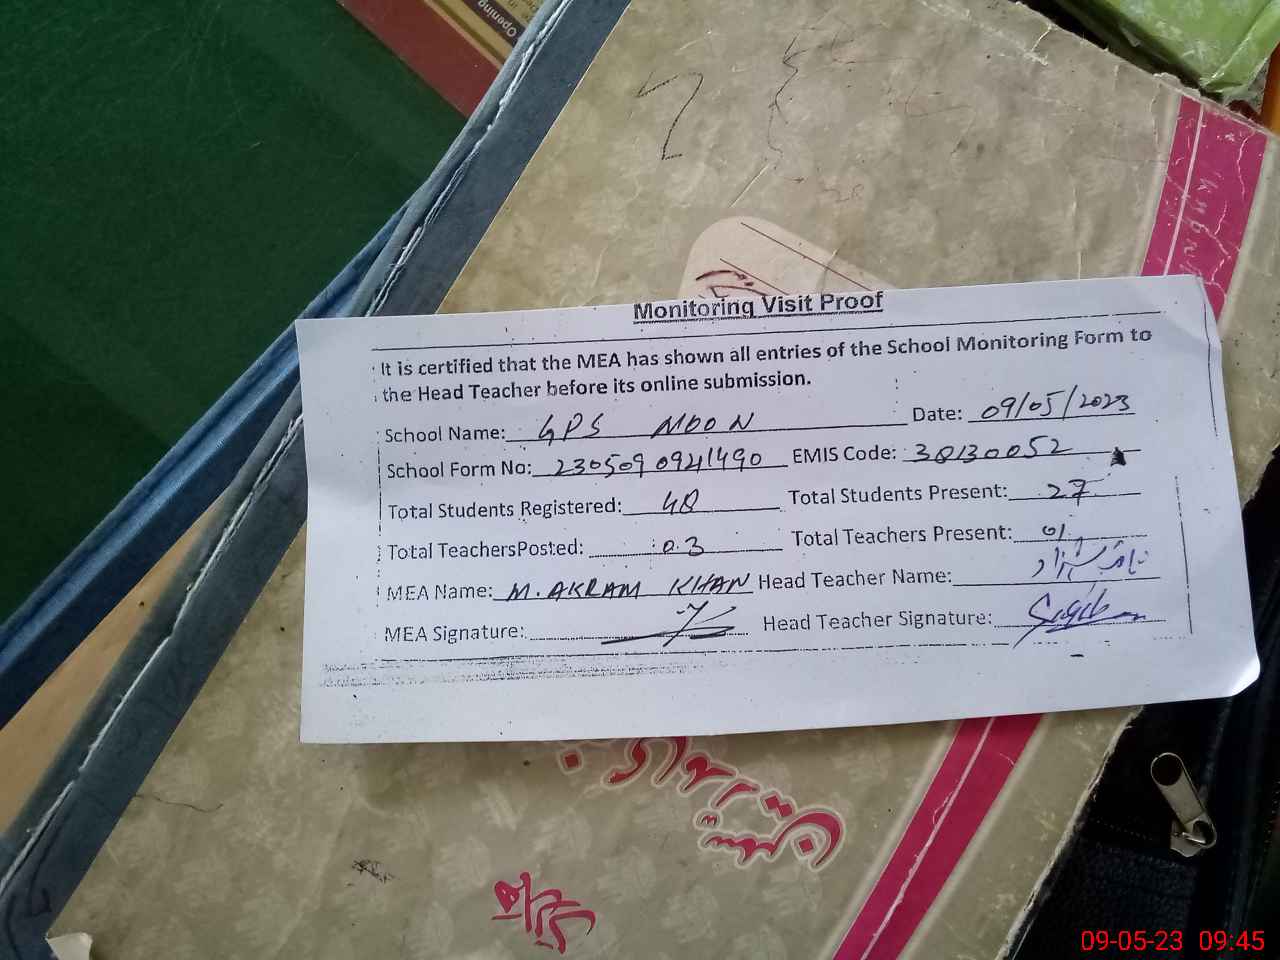 Opening
Monitoring Visit Proof
It is certified that the MEA has shown all entries of the School Monitoring Form to
the Head Teacher before its online submission.
School Name: GPS MOON Date: 09/05/2023
School Form No: 230509 0941490 EMIS Code: 38130052
Total Students Registered: 48 Total Students Present: 27
Total TeachersPosted: 03 Total Teachers Present: 01
MEA Name: M. AKRAM KHAN Head Teacher Name:
MEA Signature: Head Teacher Signature:
09-05-23 09:45